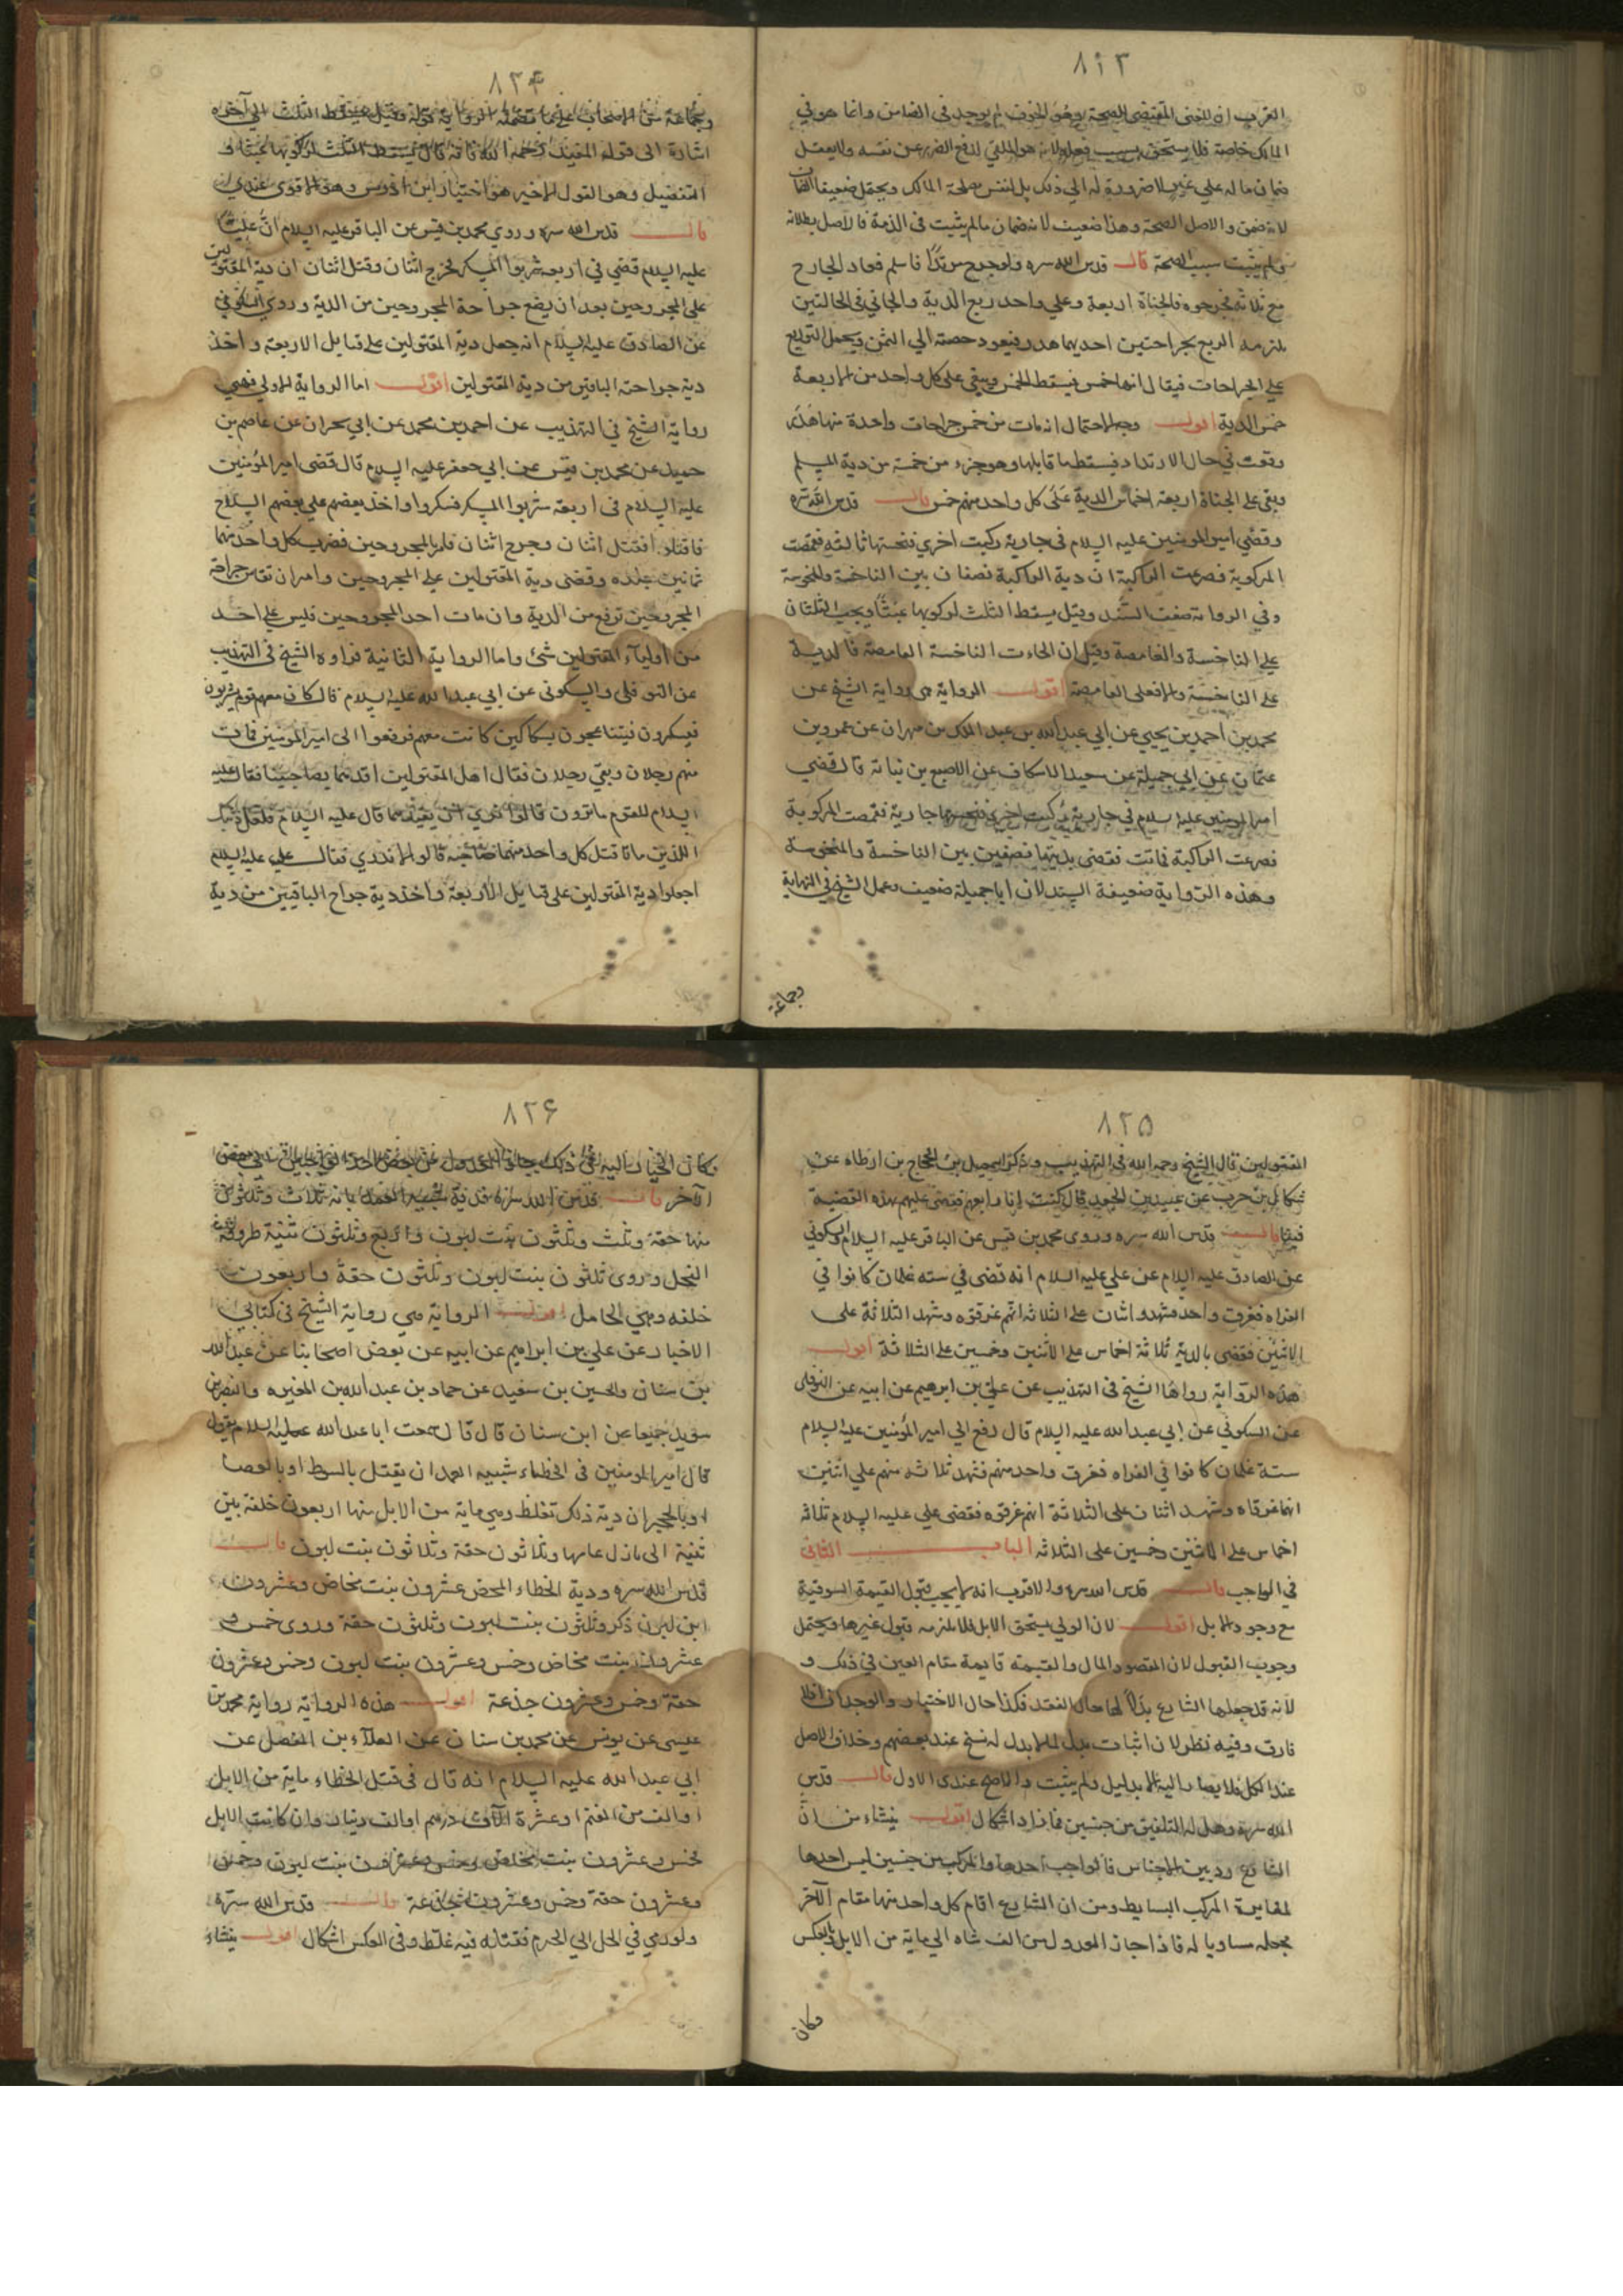 ٨٢٣
القرب ان المعنى المقتضى للصحة وهو الخوف لم يوجد في الضامن وانما هو في
المالك خاصة فلا يستحق بسبب فعله لانه هو الملقي لدفع الضرر عن نفسه ولا يعقل
ضمان ماله على غيره لا ضرورة له الى ذلك بل لنفس مصلحة المالك ويحتمل ضعيفا الضمان
لانه ضمن والاصل الصحة وهذا ضعيف لانه ضمان مالم يثبت فى الذمة فالاصل بطلانه
ولم يثبت سبب الصحة قال قدس الله سره ولو جرح مرتدا فاسلم فعاد الجارح
مع ثلاثة فجرحوه فالجناة اربعة وعلى واحد ربع الدية والجانى فى الحالتين
يلزمه الربع بجراحتين احديهما هدر فيعود حصته الى الثمن ويحتمل التوزيع
على الجراحات فيقال انها خمس فيسقط الخمس ويبقى على كل واحد من الاربعة
خمس الدية اقول وجه الاحتمال انه مات من خمس جراحات واحدة منها هدر
وقعت في حال الارتداد فيسقط ما قابلها وهو جزء من خمسة من دية المسلم
وبقى على الجناة اربعة اخماس الدية على كل واحد منهم خمس قال قدس الله سره
وقضى امير المومنين عليه السلام فى جارية ركبت اخرى فنخستها ثالثة فقمصت
المركوبة فصرعت الراكبة ان دية الراكبة نصفان بين الناخسة والمنخوسة
وفي الرواية ضعف السند وقيل يسقط الثلث لركوبها عبثا ويجب الثلثان
على الناخسة والقامصة وقيل ان الجاءت الناخسة القامصة فالدية
على الناخسة والا فعلى القامصة اقول الرواية هى رواية الشيخ عن
محمد بن احمد بن يحيى عن ابي عبد الله بن عبد الملك من مهران عن عمرو بن
عثمان عن ابي جميلة عن سعيد الاسكاف عن الاصبغ بن نباتة قال قضى
امير المومنين عليه السلام في جارية ركبت اخرى فنخستها جارية فقمصت المركوبة
فصرعت الراكبة فماتت فقضى بديتها نصفين بين الناخسة والمنخوسة
وهذه الرواية ضعيفة السند لان ابا جميلة ضعيف وعمل الشيخ في النهاية
وجماعة
٨٢۴
وجماعة من الاصحاب على ما تضمنته الرواية قوله وقيل يسقط الثلث الى آخره
اشارة الى قوله المفيد رحمه الله فانه قال يسقط الثلث لركوبها عبثا و
التفضيل وهو القول الاخير هو اختيار ابن ادريس وهو الاقوى عندي
قال قدس الله سره وروي محمد بن قيس عن الباقر عليه السلام ان عليا
عليه السلام قضى في اربعة شربوا المسكر فخرج اثنان وقتل اثنان ان دية المقتولين
على المجروحين بعد ان يضع جراحة المجروحين من الدية وروى السكوني
عن الصادق عليه السلام انه جعل دية المقتولين على قبايل الاربعة واخذ
دية جراحة الباقين من دية المقتولين اقول اما الرواية الاولى فهى
رواية الشيخ في التهذيب عن احمد بن محمد عن ابي بحران عن عاصم بن
حميد عن محمد بن قيس عن ابي جعفر عليه السلام قال قضى امير المؤمنين
عليه السلام فى اربعة شربوا المسكر فسكروا واخذ بعضهم على بعضهم السلاح
فاقتلوا فقتل اثنان وجرح اثنان فامر بالمجروحين فضرب كل واحد منهما
ثمانين جلده وقضى دية المقتولين على المجروحين وامر ان تقاس جراحة
المجروحين ترفع من الدية وان مات احد المجروحين فليس على احد
من اولياء المقتولين شئ واما الرواية الثانية فرواه الشيخ فى التهذيب
عن النوفلى والسكونى عن ابي عبد الله عليه السلام قال كان معهم قوم يشربون
فيسكرون فيتباعجون بسكاكين كانت معهم فرفعوا الى امير المومنين فمات
منهم رجلان وبقى رجلان فقال اهل المقتولين اقدهما بصاحبينا فقال عليه
السلام للقوم ماترون قالوا نرى ان تقيدهما قال عليه السلام فلعل ذينك
اللذين ماتا قتل كل واحد منهما صاحبه قالوا لا ندري فقال على عليه السلام
اجعلوا دية المقتولين على قبايل الاربعة واخذ دية جراح الباقيين من دية
٨٢۵
المقتولين قال الشيخ رحمه الله فى التهذيب وذكر اسمعيل بن الحجاج بن ارطاه عن
سماك بن حرب عن عبيد بن الجعد قال كنت انا رابعهم فقضى عليهم بهذه القضية
فينا قال قدس الله سره وروى محمد بن قيس عن الباقر عليه السلام والسكوني
عن الصادق عليه السلام عن علي عليه السلام انه قضى في سته غلمان كانوا في
الفراه فغرق واحد فشهد اثنان على الثلاثة انهم غرقوه وشهد الثلاثة على
الاثنين فقضى بالدية ثلاثة اخماس على الاثنين وخمسين على الثلاثة اقول
هذه الرواية رواها الشيخ فى التهذيب عن علي بن ابرهيم عن ابيه عن النوفلى
عن السكوني عن ابي عبد الله عليه السلام قال رفع الى امير المؤمنين عليه السلام
ستة غلمان كانوا في الفراه فغرق واحد منهم فشهد ثلاثة منهم على اثنين
انهما غرقاه وشهد اثنان على الثلاثة انهم غرقوه فقضى علي عليه السلام ثلاثه
اخماس على الاثنين وخمسين على الثلاثه الباب الثانى
في الواجب قال قدس الله سره والاقرب انه لا يجب قبول القيمة السوقية
مع وجود الابل اقول لان الولي يستحق الابل فلا يلزمه قبول غيرها ويحتمل
وجوب القبول لان المقصود المال والقيمة قايمة مقام العين في ذلك و
لانه قد جعلها الشارع بدلا لها حال الفقد فكذا حال الاختيار والوجدان اذ لا
فارق وفيه نظر لان اثبات بدل لما لا بدل له نسخ عند بعضهم وخلاف الاصل
عند الكل فلا يصار اليه الا بدليل ولم يثبت والاصح عندى الاول قال قدس
الله سره وهل له التلفيق من جنسين فما زاد اشكال اقول ينشاء من ان
الشارع ردد بين الاجناس فالواجب احدها والمركب من جنسين ليس احدها
لمغايرة المركب البسايط ومن ان الشارع اقام كل واحد منها مقام الآخر
بجعله مساويا له فاذا جاز العدول من الف شاه الى ماية من الابل وبالعكس
وكان
٨٢۶
وكان الخيار اليه في ذلك جاز العدول عن بعض احد الى بعض
الآخر قال قدس الله سره ودية شبيه العمد مائة ثلاث وثلثون
منها حقة وثلث وثلثون بنت لبون واربع وثلثون ثنية طروقة
الفحل وروى ثلثون بنت لبون وثلثون حقة واربعون
خلفه وهي الحامل اقول الرواية هي رواية الشيخ في كتابي
الاخبار عن علي بن ابراهيم عن ابيه عن بعض اصحابنا عن عبد الله
بن سنان والحسين بن سعيد عن حماد بن عبد الله بن المغيره والنضر بن
سويد جميعا عن ابن سنان قال قال سمعت ابا عبد الله عليه السلام يقول
قال امير المومنين فى الخطاء شبيه العمد ان يقتل بالسوط او بالعصا
او بالحجر ان دية ذلك تغلظ وهي ماية من الابل منها اربعون خلفة بين
ثنية الى بازل عامها وثلاثون حقة وثلاثون بنت لبون قال
قدس الله سره ودية الخطاء المحض عشرون بنت مخاض وعشرون
ابن لبون ذكر وثلثون بنت لبون وثلثون حقة وروى خمس و
عشرون بنت مخاض وخمس وعشرون بنت لبون وخمس وعشرون
حقة وخمس وعشرون جذعة اقول هذه الرواية رواية محمد بن
عيسى عن يونس عن محمد بن سنان عن العلاء بن الفضل عن
ابي عبد الله عليه السلام انه قال فى قتل الخطاء ماية من الابل
او الف من الغنم او عشرة الآف درهم او الف دينار وان كانت الابل
فخمس وعشرون بنت مخاض وخمس وعشرون بنت لبون وخمس
وعشرون حقة وخمس وعشرون جذعة قال قدس الله سره
ولو رمي في الحل الى الحرم فقتله فيه غلظ وفى العكس اشكال اقول ينشاء